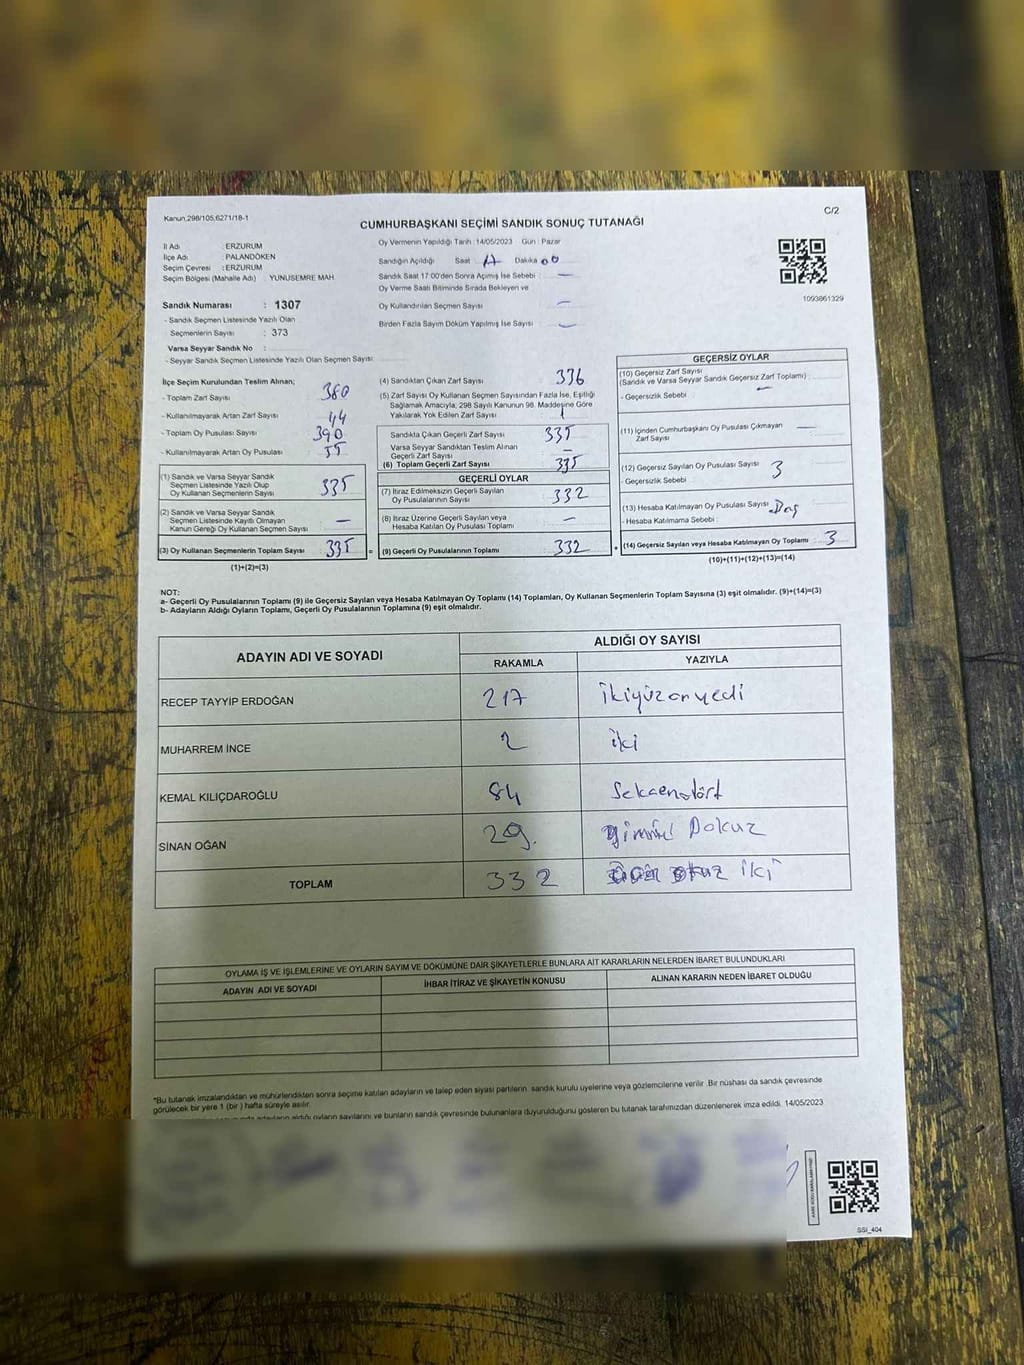 Kanun,298/105,6271/18-1
C/2
CUMHURBAŞKANI SEÇİMİ SANDIK SONUÇ TUTANAĞI
İl Adı : ERZURUM
İlçe Adı : PALANDÖKEN
Seçim Çevresi : ERZURUM
Seçim Bölgesi (Mahalle Adı) : YUNUSEMRE MAH.
Sandık Numarası : 1307
- Sandık Seçmen Listesinde Yazılı Olan
Seçmenlerin Sayısı : 373
Varsa Seyyar Sandık No :
- Seyyar Sandık Seçmen Listesinde Yazılı Olan Seçmen Sayısı:
Oy Vermenin Yapıldığı Tarih :14/05/2023 Gün : Pazar
Sandığın Açıldığı Saat Dakika 00
Sandık Saat 17:00'den Sonra Açılmış İse Sebebi : —
Oy Verme Saati Bitiminde Sırada Bekleyen ve
Oy Kullandırılan Seçmen Sayısı —
Birden Fazla Sayım Döküm Yapılmış İse Sayısı —
1093861329
İlçe Seçim Kurulundan Teslim Alınan;
- Toplam Zarf Sayısı 380
- Kullanılmayarak Artan Zarf Sayısı 44
- Toplam Oy Pusulası Sayısı 390
- Kullanılmayarak Artan Oy Pusulası 55
(1) Sandık ve Varsa Seyyar Sandık
Seçmen Listesinde Yazılı Olup
Oy Kullanan Seçmenlerin Sayısı 335
(2) Sandık ve Varsa Seyyar Sandık
Seçmen Listesinde Kayıtlı Olmayan
Kanun Gereği Oy Kullanan Seçmen Sayısı —
(3) Oy Kullanan Seçmenlerin Toplam Sayısı 335 =
(1)+(2)=(3)
(4) Sandıktan Çıkan Zarf Sayısı 336
(5) Zarf Sayısı Oy Kullanan Seçmen Sayısından Fazla İse, Eşitliği
Sağlamak Amacıyla, 298 Sayılı Kanunun 98. Maddesine Göre
Yakılarak Yok Edilen Zarf Sayısı 1
Sandıkta Çıkan Geçerli Zarf Sayısı 335
Varsa Seyyar Sandıktan Teslim Alınan
Geçerli Zarf Sayısı —
(6) Toplam Geçerli Zarf Sayısı 335
GEÇERLİ OYLAR
(7) İtiraz Edilmeksizin Geçerli Sayılan
Oy Pusulalarının Sayısı 332
(8) İtiraz Üzerine Geçerli Sayılan veya
Hesaba Katılan Oy Pusulası Toplamı —
(9) Geçerli Oy Pusulalarının Toplamı 332 +
GEÇERSİZ OYLAR
(10) Geçersiz Zarf Sayısı
(Sandık ve Varsa Seyyar Sandık Geçersiz Zarf Toplamı)
- Geçersizlik Sebebi : —
(11) İçinden Cumhurbaşkanı Oy Pusulası Çıkmayan
Zarf Sayısı —
(12) Geçersiz Sayılan Oy Pusulası Sayısı 3
- Geçersizlik Sebebi :
(13) Hesaba Katılmayan Oy Pusulası Sayısı
- Hesaba Katılmama Sebebi :
(14) Geçersiz Sayılan veya Hesaba Katılmayan Oy Toplamı 3
(10)+(11)+(12)+(13)=(14)
NOT:
a- Geçerli Oy Pusulalarının Toplamı (9) ile Geçersiz Sayılan veya Hesaba Katılmayan Oy Toplamı (14) Toplamları, Oy Kullanan Seçmenlerin Toplam Sayısına (3) eşit olmalıdır. (9)+(14)=(3)
b- Adayların Aldığı Oyların Toplamı, Geçerli Oy Pusulalarının Toplamına (9) eşit olmalıdır.
ADAYIN ADI VE SOYADI
ALDIĞI OY SAYISI
RAKAMLA YAZIYLA
RECEP TAYYİP ERDOĞAN 217 ikiyüzonyedi
MUHARREM İNCE 2 iki
KEMAL KILIÇDAROĞLU 84 Seksendört
SİNAN OĞAN 29 Dokuz
TOPLAM 332 iki
OYLAMA İŞ VE İŞLEMLERİNE VE OYLARIN SAYIM VE DÖKÜMÜNE DAİR ŞİKAYETLERLE BUNLARA AİT KARARLARIN NELERDEN İBARET BULUNDUKLARI
ADAYIN ADI VE SOYADI İHBAR İTİRAZ VE ŞİKAYETİN KONUSU ALINAN KARARIN NEDEN İBARET OLDUĞU
*Bu tutanak imzalandıktan ve mühürlendikten sonra seçime katılan adayların ve talep eden siyasi partilerin sandık kurulu üyelerine veya gözlemcilerine verilir. Bir nüshası da sandık çevresinde
görülecek bir yere 1 (bir) hafta süreyle asılır.
adayların aldığı oyların sayılarını ve bunların sandık çevresinde bulunanlara duyurulduğunu gösteren bu tutanak tarafımızdan düzenlenerek imza edildi. 14/05/2023
SSI_404